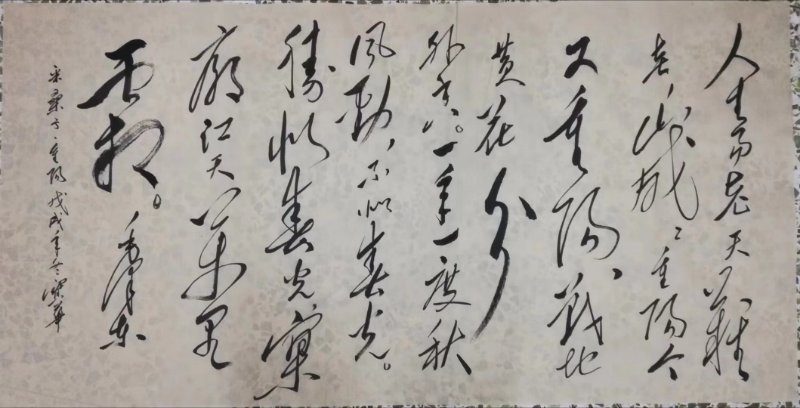 人生易老天难
老，岁岁重阳今
又重阳，战地
黄花分
外香。一年一度秋
风劲，不似春光。
胜似春光，寥
廓江天万里
霜。毛泽东
采桑子·重阳戊戌年